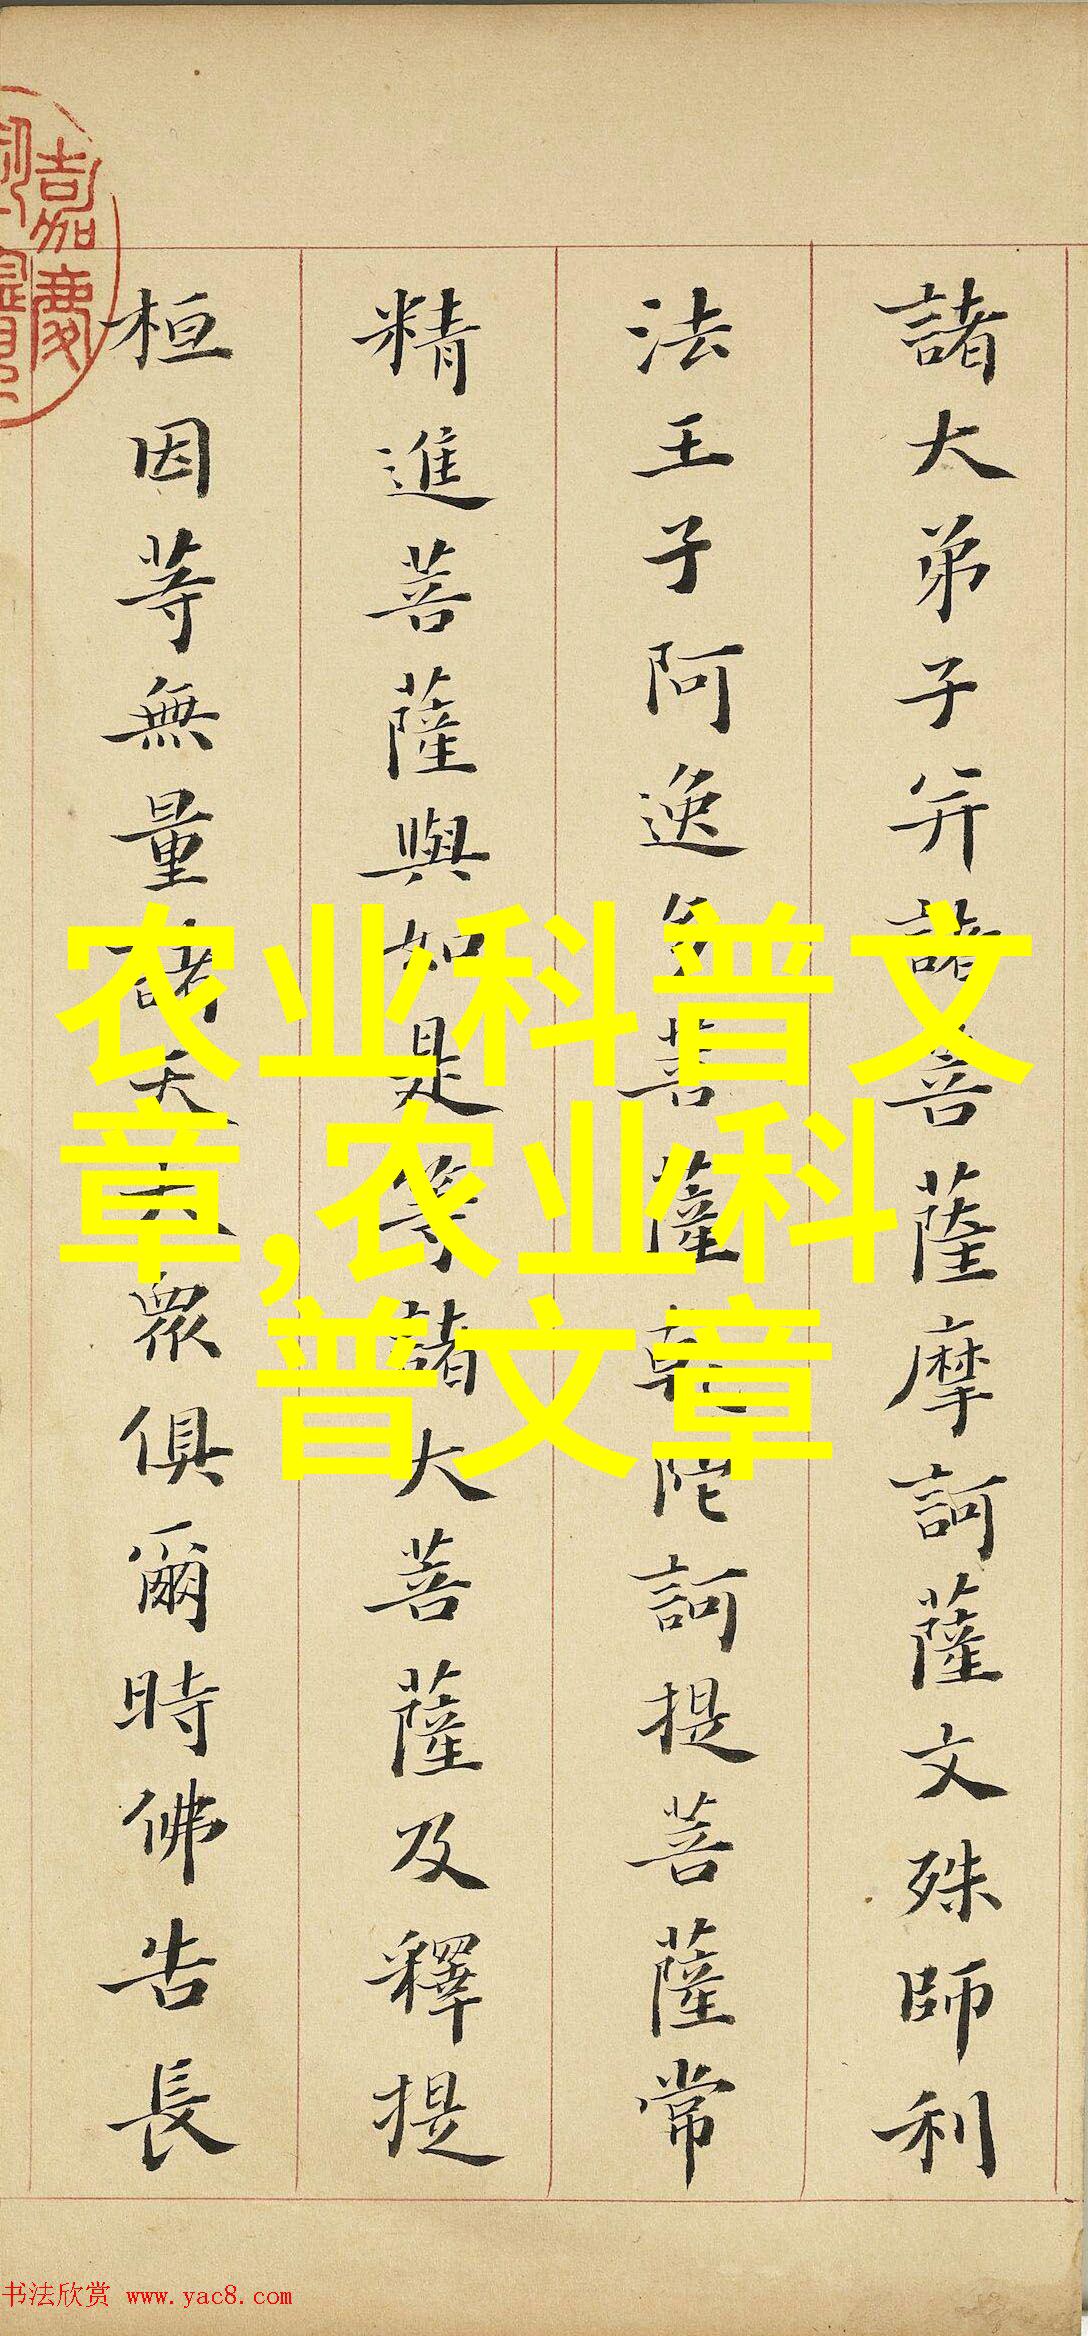 諸大弟子并諸菩薩摩訶薩文殊師利
法王子阿逸多菩薩乾陀訶提菩薩常
精進菩薩與如是等諸大菩薩及釋提
桓因等無量諸天大眾俱爾時佛告長
嘉慶
农业科普文
章,农业科
普文章
书法欣赏 www.yac8.com